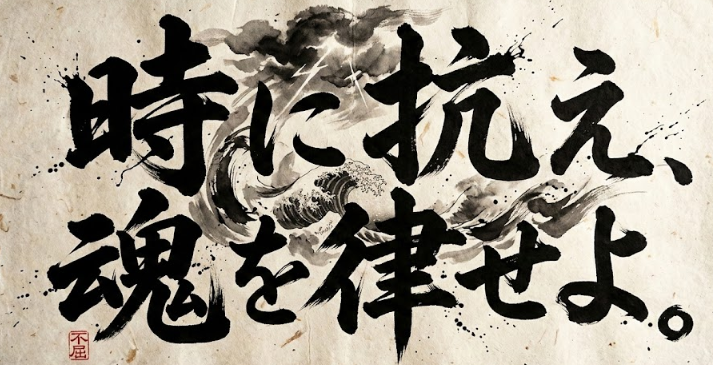 時に抗え、
魂を律せよ。
不屈